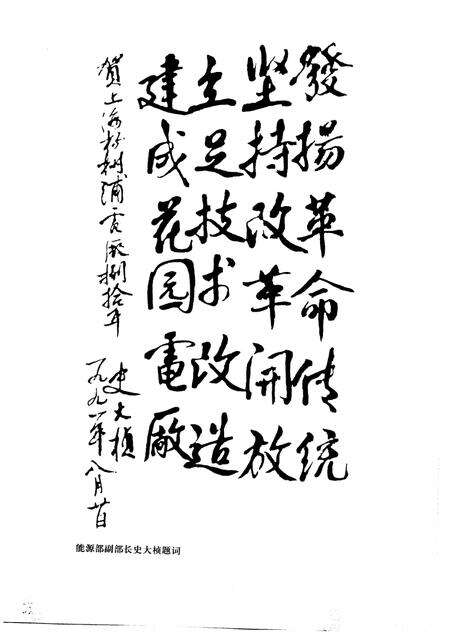 發揚革命传统
坚持改革開放
立足技术改造
建成花园電廠
賀上海杨树浦電厰捌拾年
史大桢
一九九一年八月廿日
能源部副部长史大桢题词